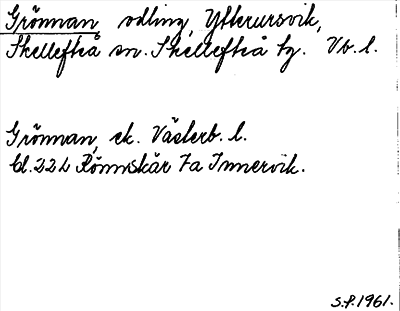 Grönnan, odling, Ytterursvik,
Skellefteå sn. Skellefteå tg. Vb. l.
Grönnan, ek. Västerb. l.
bl. 22 L Rönnskär 7a Innervik.
S.P. 1961.